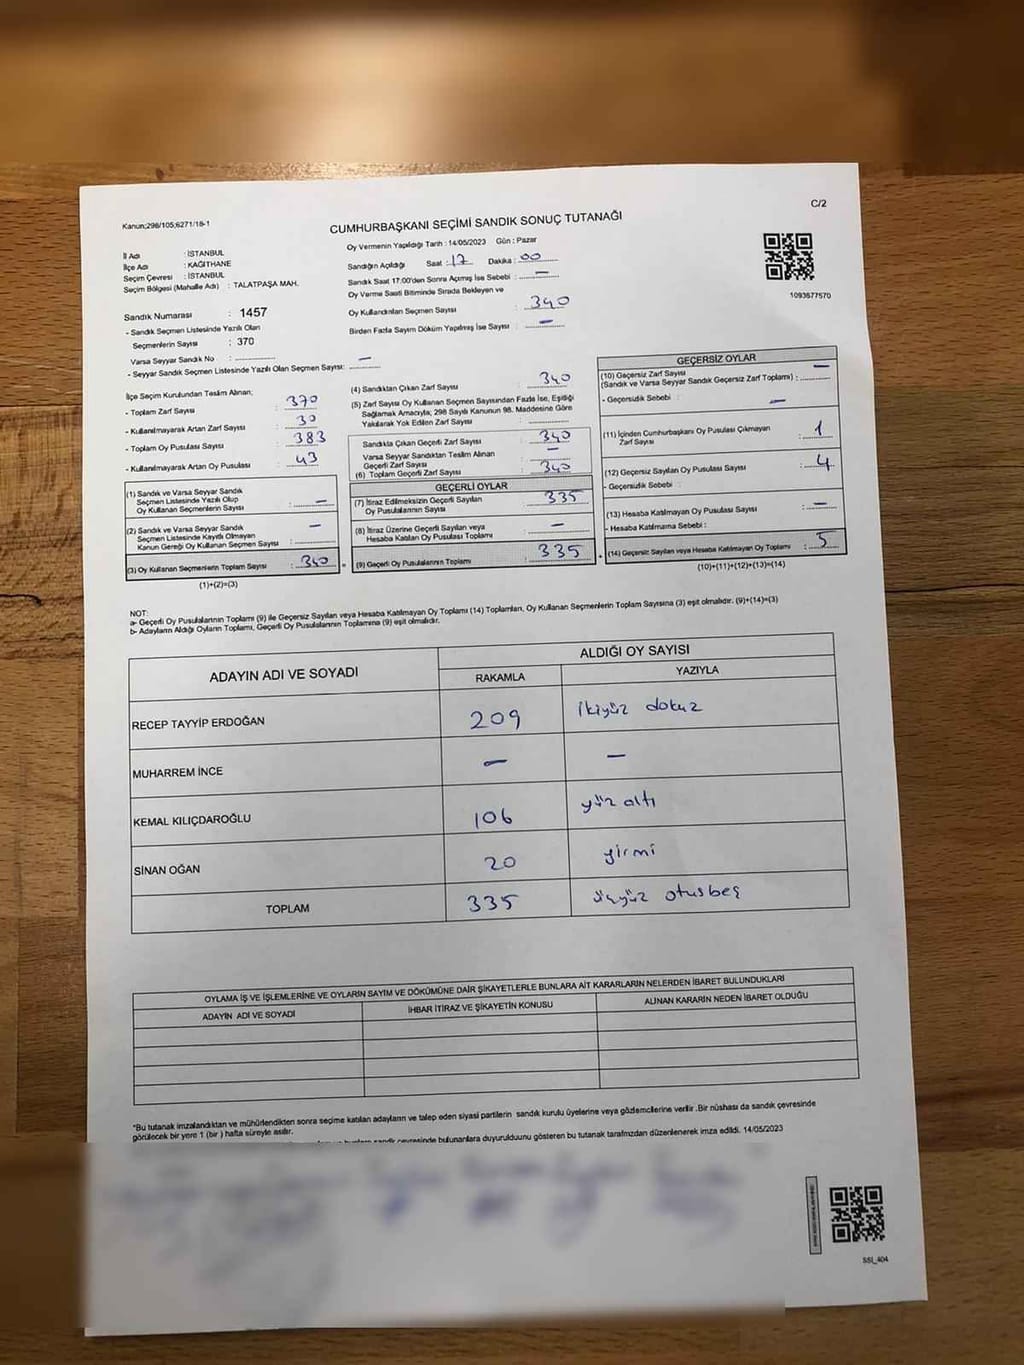 Kanun;298/105;6271/18-1
C/2
CUMHURBAŞKANI SEÇİMİ SANDIK SONUÇ TUTANAĞI
İl Adı : İSTANBUL
İlçe Adı : KAĞITHANE
Seçim Çevresi : İSTANBUL
Seçim Bölgesi (Mahalle Adı) : TALATPAŞA MAH.
Sandık Numarası : 1457
- Sandık Seçmen Listesinde Yazılı Olan
Seçmenlerin Sayısı : 370
Varsa Seyyar Sandık No :
- Seyyar Sandık Seçmen Listesinde Yazılı Olan Seçmen Sayısı: —
Oy Vermenin Yapıldığı Tarih : 14/05/2023 Gün : Pazar
Sandığın Açıldığı Saat : 17 Dakika : 00
Sandık Saat 17:00'den Sonra Açılmış İse Sebebi : —
Oy Verme Saati Bitiminde Sırada Bekleyen ve
Oy Kullandırılan Seçmen Sayısı : 340
Birden Fazla Sayım Döküm Yapılmış İse Sayısı : —
1093677570
İlçe Seçim Kurulundan Teslim Alınan,
- Toplam Zarf Sayısı : 370
- Kullanılmayarak Artan Zarf Sayısı : 30
- Toplam Oy Pusulası Sayısı : 383
- Kullanılmayarak Artan Oy Pusulası : 43
(1) Sandık ve Varsa Seyyar Sandık
Seçmen Listesinde Yazılı Olup
Oy Kullanan Seçmenlerin Sayısı : —
(2) Sandık ve Varsa Seyyar Sandık
Seçmen Listesinde Kayıtlı Olmayan
Kanun Gereği Oy Kullanan Seçmen Sayısı : —
(3) Oy Kullanan Seçmenlerin Toplam Sayısı : 340
(1)+(2)=(3)
(4) Sandıktan Çıkan Zarf Sayısı : 340
(5) Zarf Sayısı Oy Kullanan Seçmen Sayısından Fazla İse, Eşitliği
Sağlamak Amacıyla; 298 Sayılı Kanunun 98. Maddesine Göre
Yakılarak Yok Edilen Zarf Sayısı :
Sandıkta Çıkan Geçerli Zarf Sayısı : 340
Varsa Seyyar Sandıktan Teslim Alınan
Geçerli Zarf Sayısı : —
(6) Toplam Geçerli Zarf Sayısı : 340
GEÇERLİ OYLAR
(7) İtiraz Edilmeksizin Geçerli Sayılan
Oy Pusulasının Sayısı : 335
(8) İtiraz Üzerine Geçerli Sayılan veya
Hesaba Katılan Oy Pusulası Toplamı : —
= (9) Geçerli Oy Pusulalarının Toplamı : 335
GEÇERSİZ OYLAR
(10) Geçersiz Zarf Sayısı
(Sandık ve Varsa Seyyar Sandık Geçersiz Zarf Toplamı) : —
- Geçersizlik Sebebi : —
(11) İçinden Cumhurbaşkanı Oy Pusulası Çıkmayan
Zarf Sayısı : 1
(12) Geçersiz Sayılan Oy Pusulası Sayısı : 4
- Geçersizlik Sebebi :
(13) Hesaba Katılmayan Oy Pusulası Sayısı : —
- Hesaba Katılmama Sebebi :
(14) Geçersiz Sayılan veya Hesaba Katılmayan Oy Toplamı : 5
(10)+(11)+(12)+(13)=(14)
NOT:
a- Geçerli Oy Pusulalarının Toplamı (9) ile Geçersiz Sayılan veya Hesaba Katılmayan Oy Toplamı (14) Toplamları, Oy Kullanan Seçmenlerin Toplam Sayısına (3) eşit olmalıdır. (9)+(14)=(3)
b- Adayların Aldığı Oyların Toplamı, Geçerli Oy Pusulalarının Toplamına (9) eşit olmalıdır.
ADAYIN ADI VE SOYADI
ALDIĞI OY SAYISI
RAKAMLA YAZIYLA
RECEP TAYYİP ERDOĞAN 209 ikiyüz dokuz
MUHARREM İNCE — —
KEMAL KILIÇDAROĞLU 106 yüz altı
SİNAN OĞAN 20 yirmi
TOPLAM 335 üçyüz otuzbeş
OYLAMA İŞ VE İŞLEMLERİNE VE OYLARIN SAYIM VE DÖKÜMÜNE DAİR ŞİKAYETLERLE BUNLARA AİT KARARLARIN NELERDEN İBARET BULUNDUKLARI
ADAYIN ADI VE SOYADI İHBAR İTİRAZ VE ŞİKAYETİN KONUSU ALINAN KARARIN NEDEN İBARET OLDUĞU
*Bu tutanak imzalandıktan ve mühürlendikten sonra seçime katılan adayların ve talep eden siyasi partilerin sandık kurulu üyelerine veya gözlemcilerine verilir .Bir nüshası da sandık çevresinde
görülecek bir yere 1 (bir ) hafta süreyle asılır.
sandık çevresinde bulunanlara duyurulduunu gösteren bu tutanak tarafmızdan düzenlenerek imza edildi. 14/05/2023
SSI_404